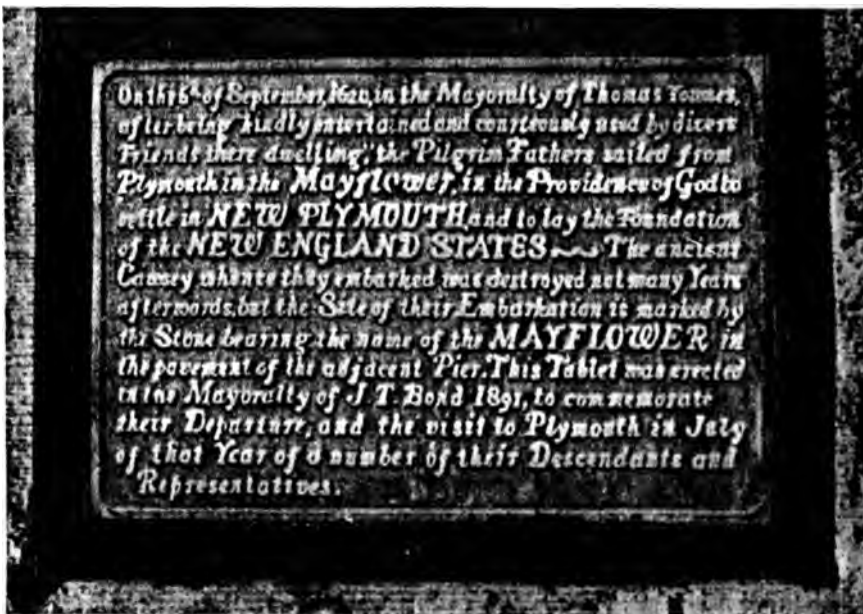 On the 6th of September, 1620, in the Mayoralty of Thomas Townes,
after being "kindly entertained and courteously used by divers
Friends there dwelling," the Pilgrim Fathers sailed from
Plymouth in the Mayflower, in the Providence of God to
settle in NEW PLYMOUTH, and to lay the Foundation
of the NEW ENGLAND STATES The ancient
Cawsey whence they embarked was destroyed not many Years
afterwords, but the Site of their Embarkation is marked by
the Stone bearing the name of the MAYFLOWER in
the pavement of the adjacent Pier. This Tablet was erected
in the Mayoralty of J. T. Bond 1891, to commemorate
their Departure, and the visit to Plymouth in July
of that Year of a number of their Descendants and
Representatives.